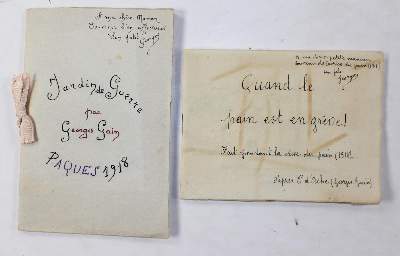 A ma chère Maman
Souvenir d'un affectueux
petit
Georges
Jardin
de Guerre
par
Georges Goin
PAQUES 1918
A ma chère petite maman
son fils
Georges
Quand le
pain est en grève!
Fait pendant la crise du pain (1918).
(Georges Goin)